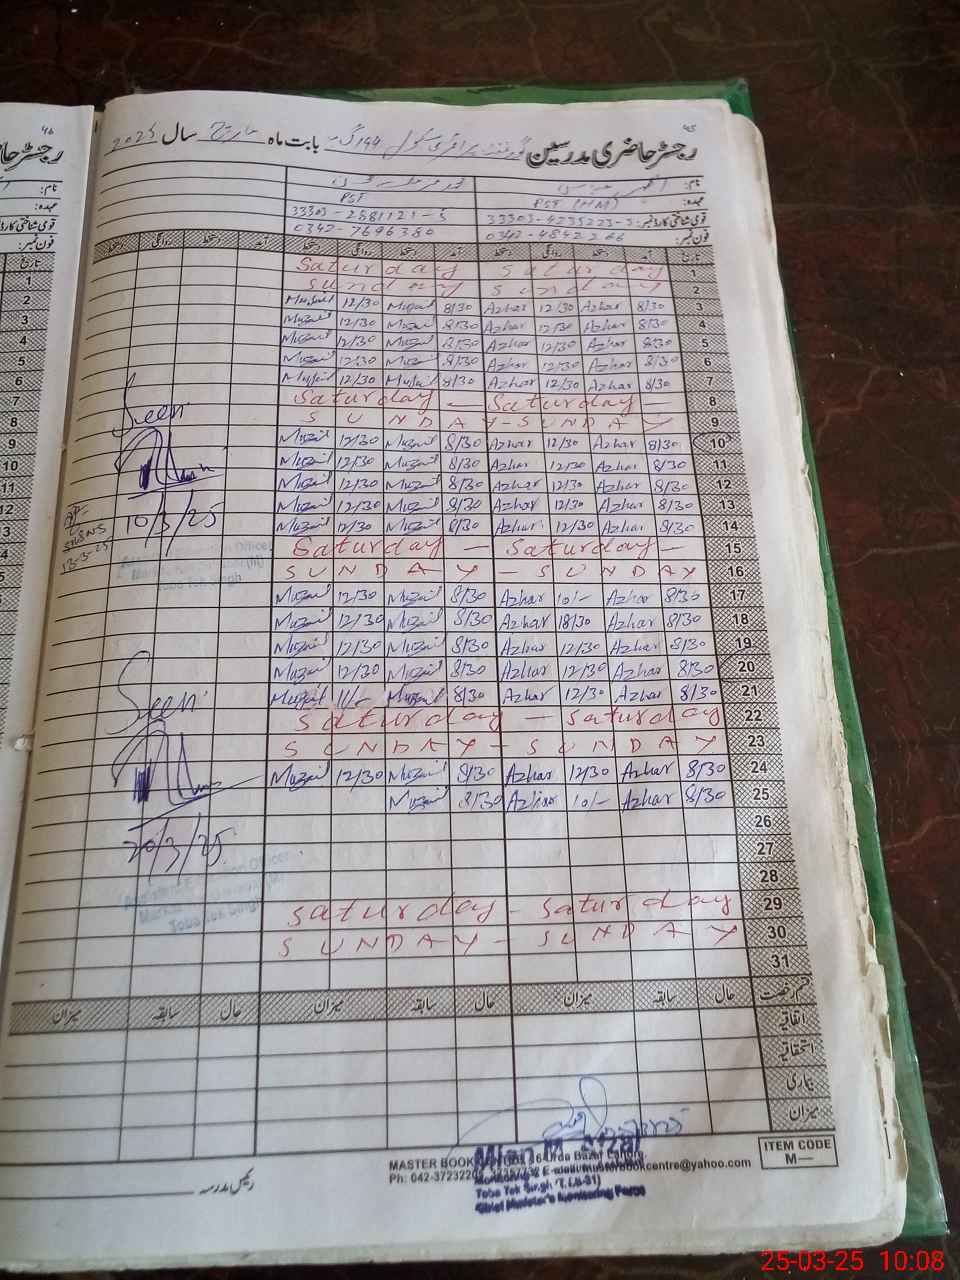 رجسٹر حاضری مدرسین گورنمنٹ پرائمری سکول 194 گ ب بابت ماہ مارچ سال 2025
نام:
عہدہ: PST (HM) PST
قومی شناختی کارڈ نمبر: 33303-4235223-5 33303-2581121-5
فون نمبر: 0342-7696380
تاریخ آمد دستخط روانگی دستخط آمد دستخط روانگی دستخط آمد دستخط روانگی دستخط
Saturday Saturday 1
Sunday Sunday 2
Muzail 12/30 Muzail 8/30 Azhar 12/30 Azhar 8/30 3
Muzail 12/30 Muzail 8/30 Azhar 12/30 Azhar 8/30 4
Muzail 12/30 Muzail 8/30 Azhar 12/30 Azhar 8/30 5
Muzail 12/30 Muzail 8/30 Azhar 12/30 Azhar 8/30 6
Muzail 12/30 Muzail 8/30 Azhar 12/30 Azhar 8/30 7
Saturday — Saturday — 8
SUNDAY - SUNDAY 9
Muzail 12/30 Muzail 8/30 Azhar 12/30 Azhar 8/30 10
Muzail 12/30 Muzail 8/30 Azhar 12/30 Azhar 8/30 11
Muzail 12/30 Muzail 8/30 Azhar 12/30 Azhar 8/30 12
Muzail 12/30 Muzail 8/30 Azhar 12/30 Azhar 8/30 13
Muzail 12/30 Muzail 8/30 Azhar 12/30 Azhar 8/30 14
Saturday — Saturday — 15
SUNDAY - SUNDAY 16
Muzail 12/30 Muzail 8/30 Azhar 10/- Azhar 8/30 17
Muzail 12/30 Muzail 8/30 Azhar 18/30 Azhar 8/30 18
Muzail 12/30 Muzail 8/30 Azhar 12/30 Azhar 8/30 19
Muzail 12/30 Muzail 8/30 Azhar 12/30 Azhar 8/30 20
Muzail 11/- Muzail 8/30 Azhar 12/30 Azhar 8/30 21
Saturday — Saturday 22
SUNDAY - SUNDAY 23
Muzail 12/30 Muzail 8/30 Azhar 12/30 Azhar 8/30 24
Muzail 8/30 Azhar 10/- Azhar 8/30 25
26
27
28
Saturday - Saturday 29
SUNDAY - SUNDAY 30
31
Seen
10/3/25
Seen
20/3/25
Assistant Education Officer
Toba Tek Singh
قسم رخصت حال سابقہ میزان حال سابقہ میزان حال سابقہ میزان
اتفاقیہ
استحقاقیہ
بیماری
میزان
رئیس مدرسہ
MASTER BOOK Urdu Bazar Lahore.
Ph: 042-3723220 E-mail: masterbookcentre@yahoo.com
ITEM CODE
M—
Mian M. Afzal
Toba Tek Singh
Chief Minister's Monitoring Force
25-03-25 10:08